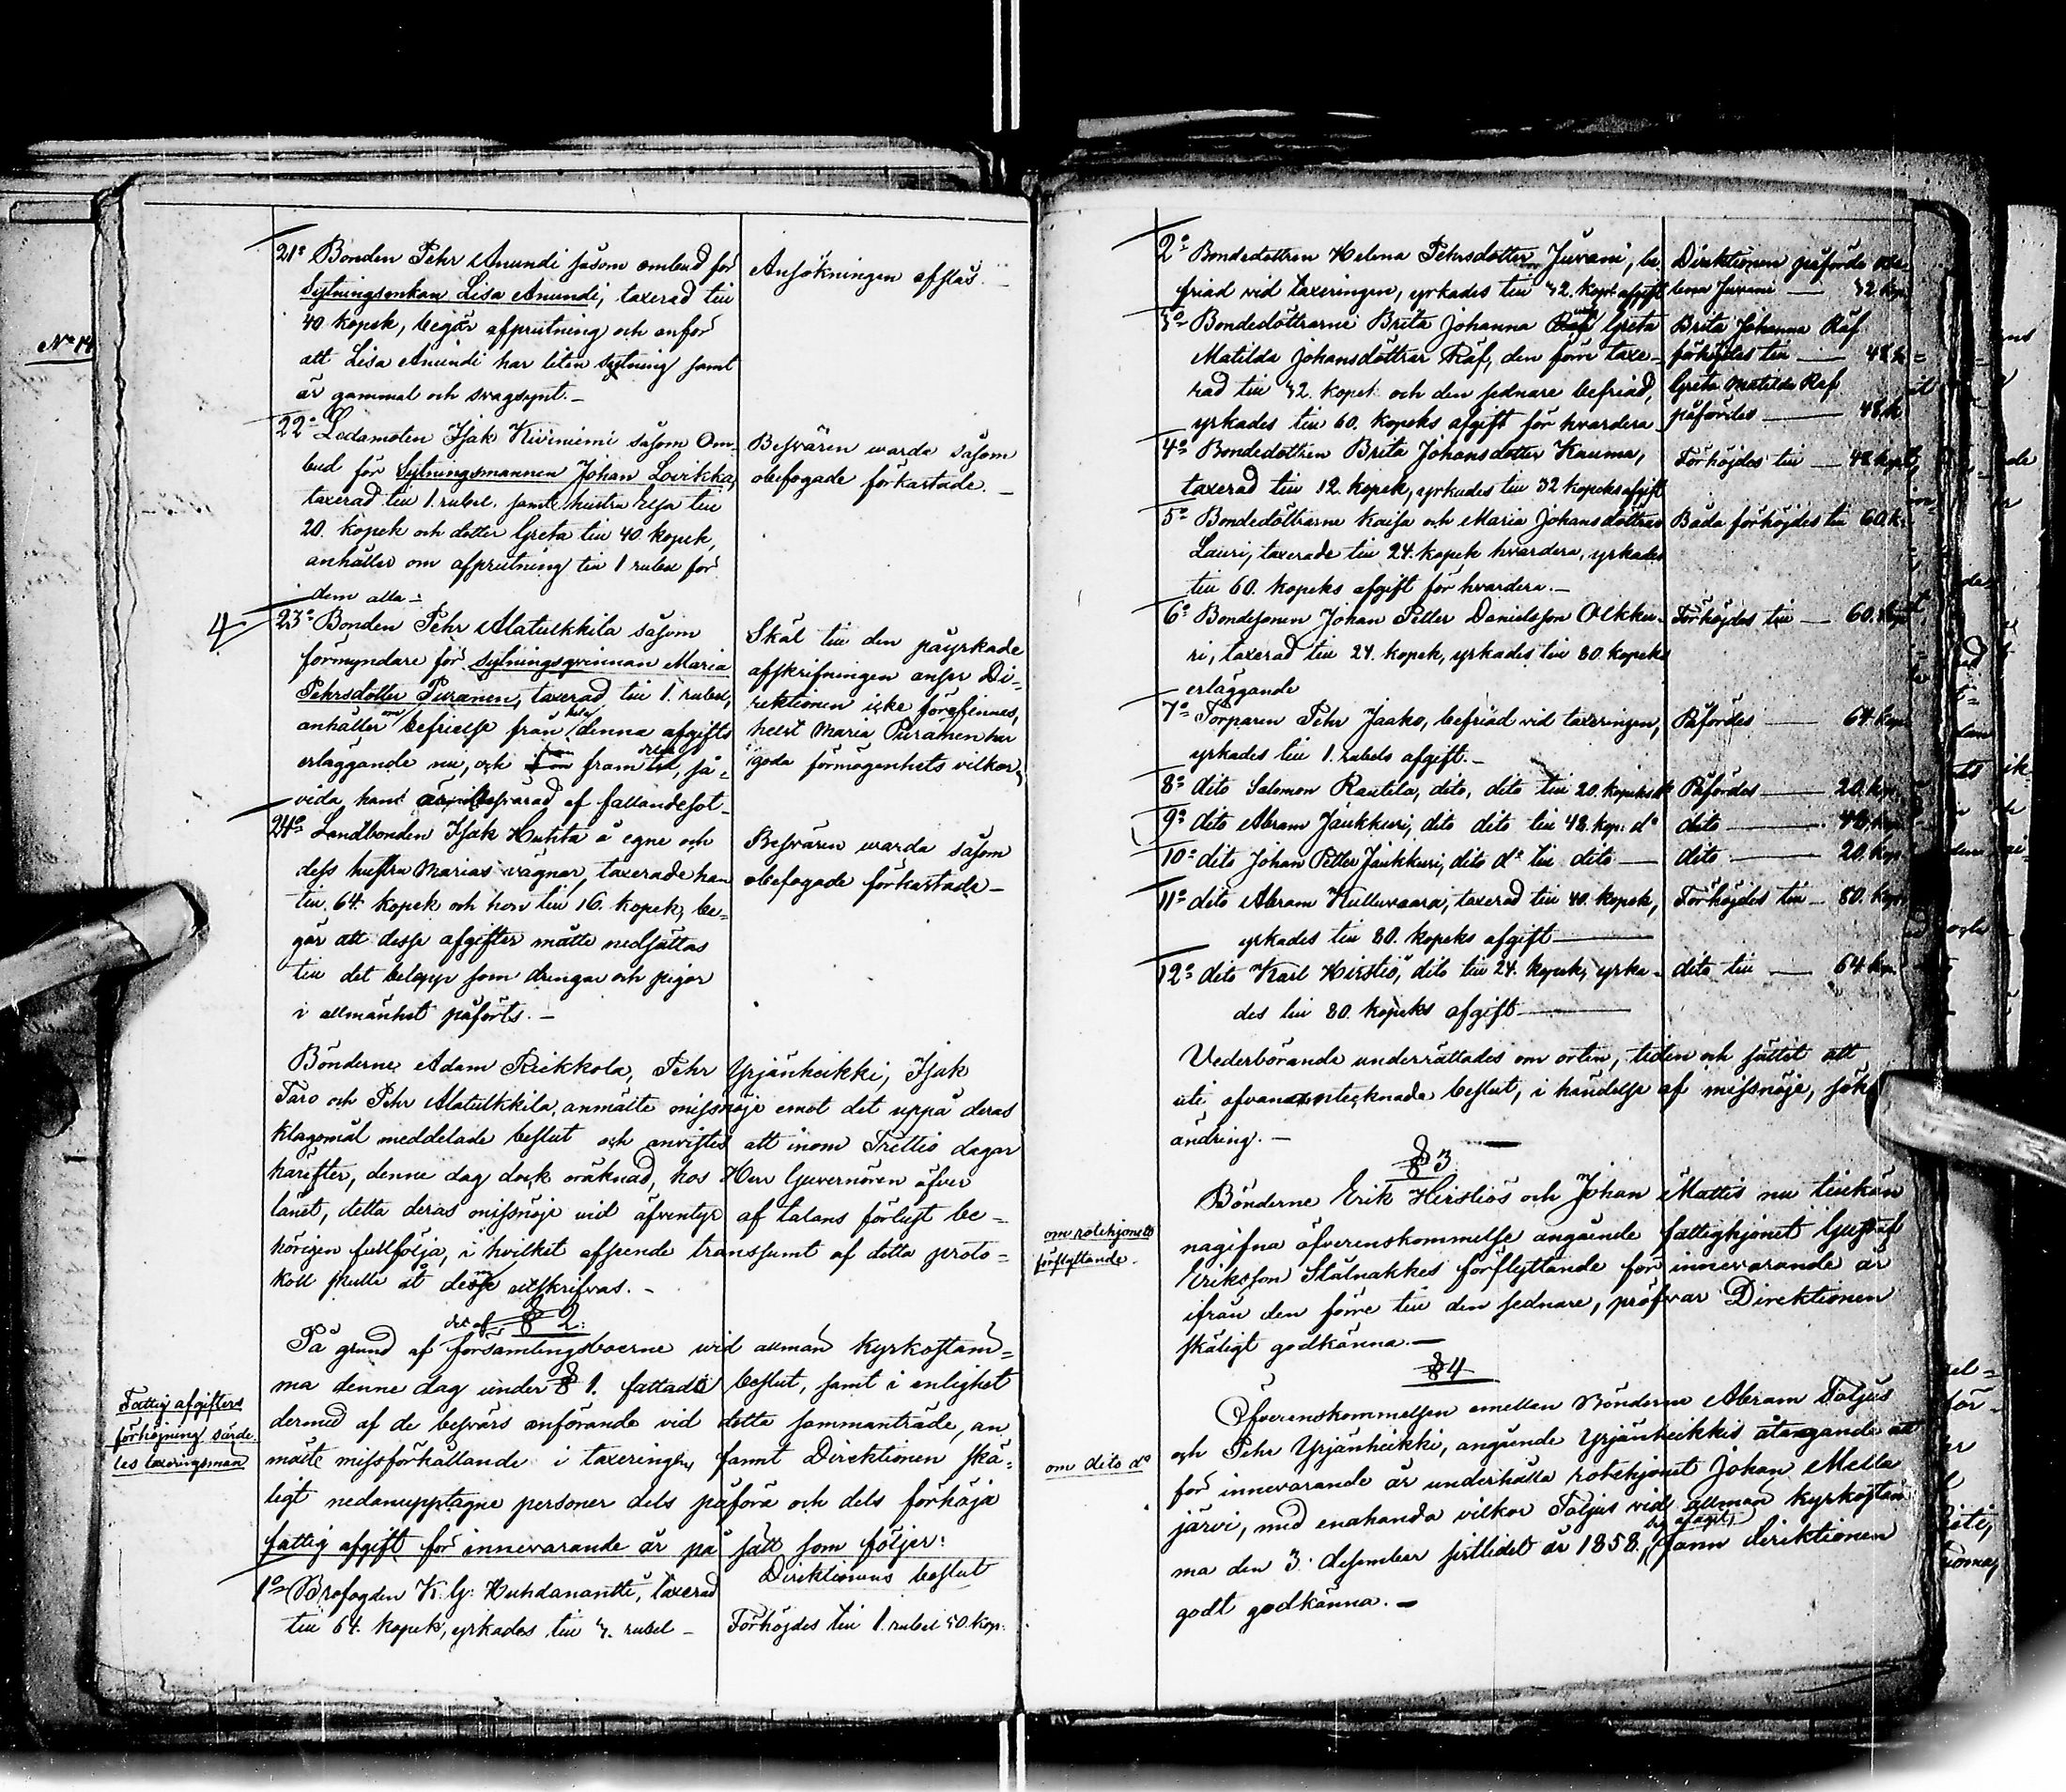 No 14
21o Bonden Pehr Anundi såsom ombud för
Sytningsenkan Lisa Anundi, taxerad till
40 kopek, begär afprutning och anför
att Lisa Anundi har liten sytning samt
är gammal och svagsynt.-
Ansökningen afslås.-
22o Ledamoten Isak Kiviniemi såsom Om-
bud för Sytningsmannen Johan Lovikka,
taxerad till 1. rubel. samt hustru Elsa till
20. kopek och dotter Greta till 40. kopek,
anhåller om afprutning till 1 rubel för
dem alla.-
Besvären warda såsom
obefogade förkastade.-
4
23o Bonden Pehr Alatulkkila såsom
förmyndare för sytningsqvinnan Maria
Pehrsdotter Puranen, taxerad till 1. rubel,
anhåller om befrielse från denna afgifts
erläggande nu, och framdeles, så-
vida hand besvärad af fallandesot.-
Skäl till den påyrkade
afskrifningen anser Di-
rektionen icke förefinnas,
helst Maria Puranen har
goda förmögenhets vilkor.
24o Landbonden Isak Huhta å egne och
dess hustru Marias vägnar, taxerade han
till 64. kopek och hon till 16. kopek, be-
gär att desse afgifter måtte nedsättas
till det belopp som drängar och pigor
i allmänhet påförts.-
Besvären warda såsom
obefogade förkastade-
Bönderne Adam Rikkola, Pehr Yrjänheikki, Isak
Taro och Pehr Alatulkkila, anmälte missnöje emot det uppå deras
klagomål meddelade beslut och anvistes att inom Trettio dagar
härefter, denne dag dock oräknad, hos Herr Guvernören öfver
länet, detta deras missnöje vid äfventyr af talans förlust be-
hörigen fullfölja, i hvilket afseende transsumt af detta proto-
koll skulle åt dem utskrifvas.-
§ 2.
På grund af det af församlingsboerne vid allmän kyrkostäm-
ma denne dag under § 1. fattade beslut, samt i enlighet
dermed af de besvärs anförande vid detta sammanträde, an
mälte missförhållande i taxeringen, fannt Direktionen skä-
ligt nedanupptagne personer dels påföra och dels förhöja
fattig afgift för innevarande år på sätt som följer:
Fattig afgifters
förhöjning särde
les taxeringsmän
Direktionens beslut
1o Brofogden K. G. Huhdanantti, taxerad
till 64. kopek, yrkades till 3. rubel -
Förhöjdes till 1. rubel 50. kop.
2o Bondedottren Helena Pehrsdotter Juvani, be-
friad vid taxeringen, yrkades till 32. kopeks afgift
Direktionen påförde He-
lena Juvani — 32 kop.
3o Bondedöttrarne Brita Johanna och Greta
Matilda Johansdöttrar Räf, den förre taxe-
rad till 32. kopek och den sednare befriad,
yrkades till 60. kopeks afgift för hvardera
Brita Johanna Räf
förhöjdes till — 48 k
Greta Matilda Räf
påfördes — 48 k.
4o Bondedottren Brita Johansdotter Kauma,
taxerad till 12. kopek, yrkades till 32 kopeks afgift
Förhöjdes till — 48 kopek
5o Bondedöttrarne Kaisa och Maria Johansdöttrar
Lauri, taxerade till 24. kopek hvardera, yrkades
till 60. kopeks afgift för hvardera.-
Båda förhöjdes till 60. k.
6o Bondsonen Johan Petter Danielsson Olkku-
ri, taxerad till 24. kopek, yrkades till 80 kopeks
erläggande
Förhöjdes till — 60. kop
7o Torparen Pehr Jaako, befriad vid taxeringen,
yrkades till 1. rubels afgift.-
Påfördes — 64. kop.
8o dito Salomon Rautila, dito, dito till 20. kopeks do
Påfördes — 20. kop.
9o dito Abram Jäukkuri, dito dito till 48. kop. do
dito — 40. kop.
10o dito Johan Petter Jäukkuri, dito do till dito —
dito — 20. kop.
11o dito Abram Kulluvaara, taxerad till 40. kopek,
yrkades till 80. kopeks afgift —
Förhöjdes till — 80. kop.
12o dito Karl Hirstiö, dito till 24. kopek, yrka-
des till 80. kopeks afgift —
dito till — 64 kop.
Vederbörande underrättades om orten, tiden och sättet att
uti ofvanantecknade beslut, i händelse af missnöje, söka
ändring.-
§ 3
Bönderne Erik Hirstiös och Johan Mattis nu tillkän
nagifna öfverenskommelse angående fattighjonet Gustaf
Eriksson Stålnakkes förflyttande för innevarande år
ifrån den förre till den sednare, pröfvar Direktionen
skäligt godkänna.-
om rotehjonets
förflyttande.
§ 4
Öfverenskommelsen emellan Bönderne Abram Taljus
och Pehr Yrjänheikki, angående Yrjänheikkis åtagande att
för innevarande år underhålla rotehjonet Johan Mella
järvi, med enahanda vilkor Taljus vid allmän kyrkostäm
ma den 3. desember sistlidet år 1858. sig åtagit, fann direktionen
godt godkänna.-
om dito do